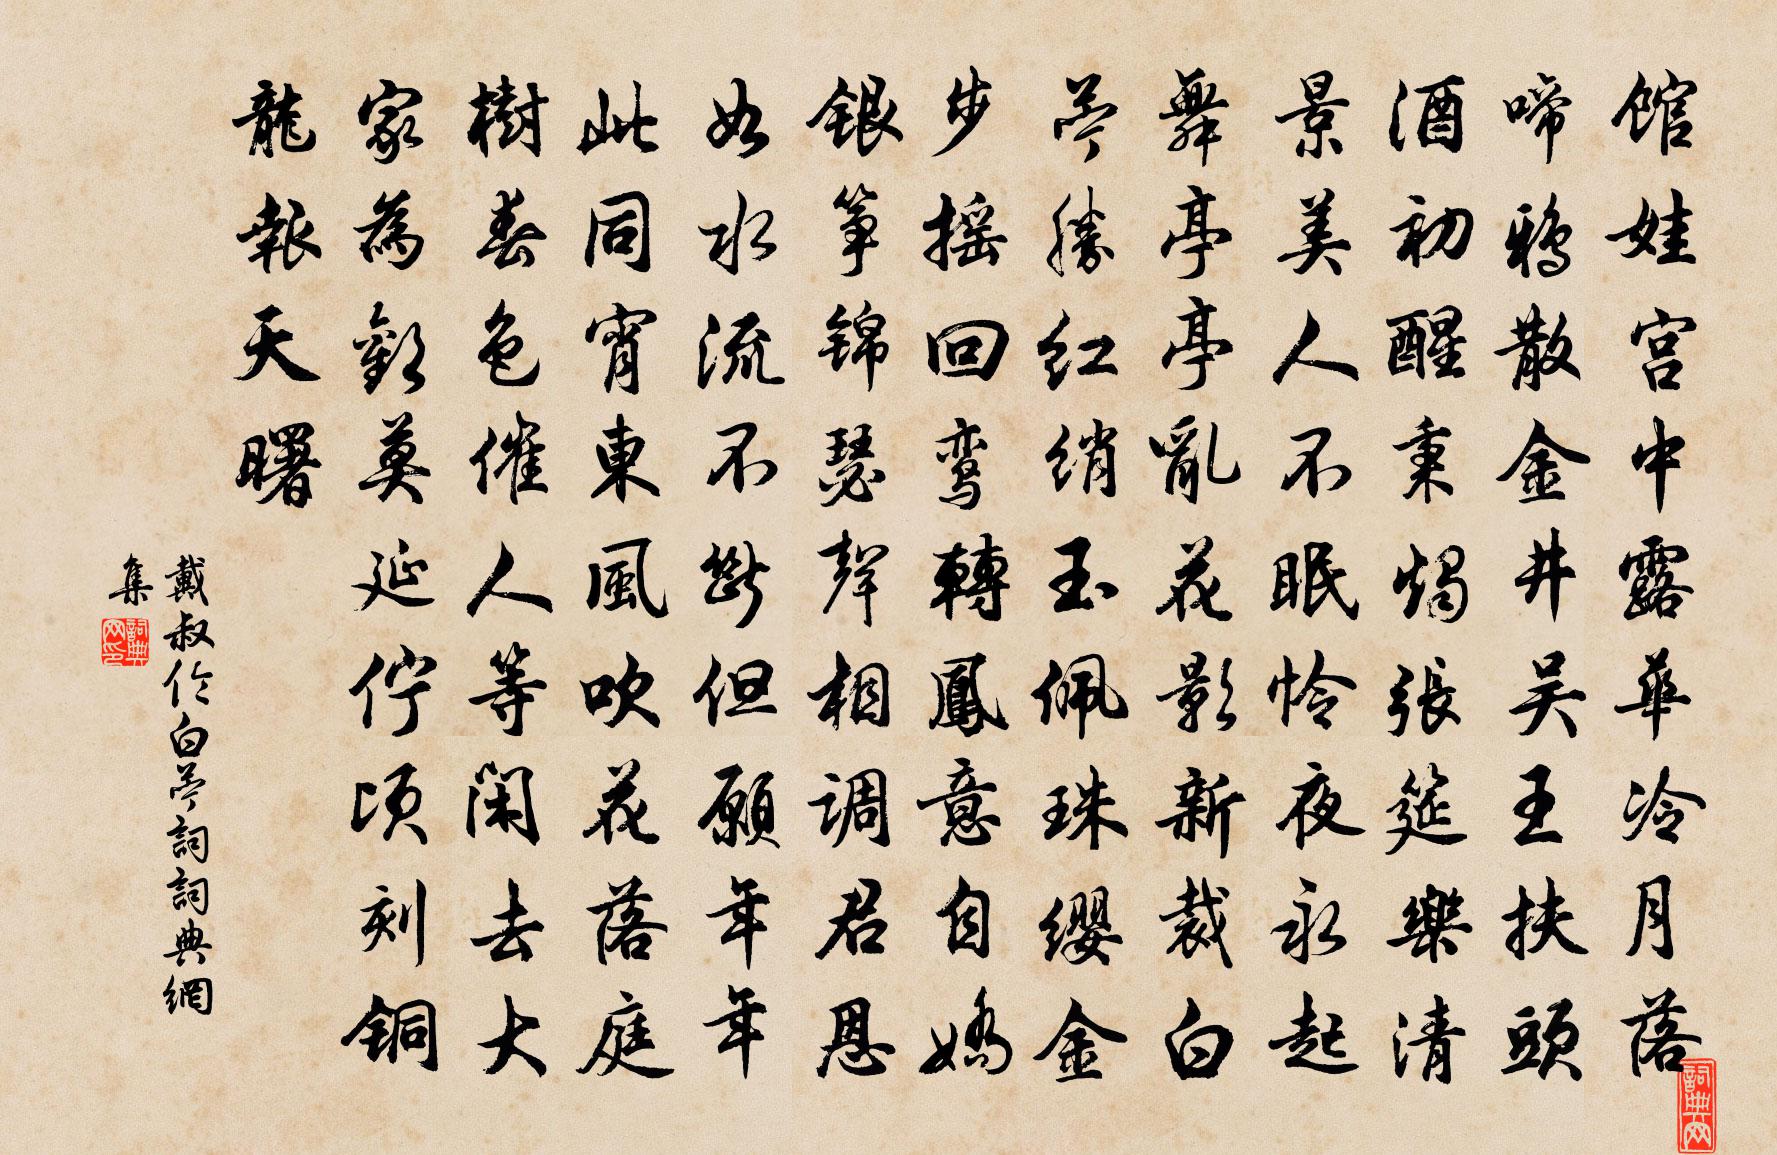 馆娃宫中露華冷月落
啼鴉散金井吴王扶頭
酒初醒秉燭張筵樂清
景美人不眠怜夜永起
舞亭亭亂花影新裁白
苎勝红绡玉佩珠缨金
步摇回鸾轉鳳意自嬌
银筝锦瑟聲相调君恩
如水流不斷但願年年
此同宵東風吹花落庭
樹春色催人等闲去大
家為歡莫延佇顷刻铜
龍報天曙
戴叔伦白苎詞詞典網
集
詞典网印
詞典网